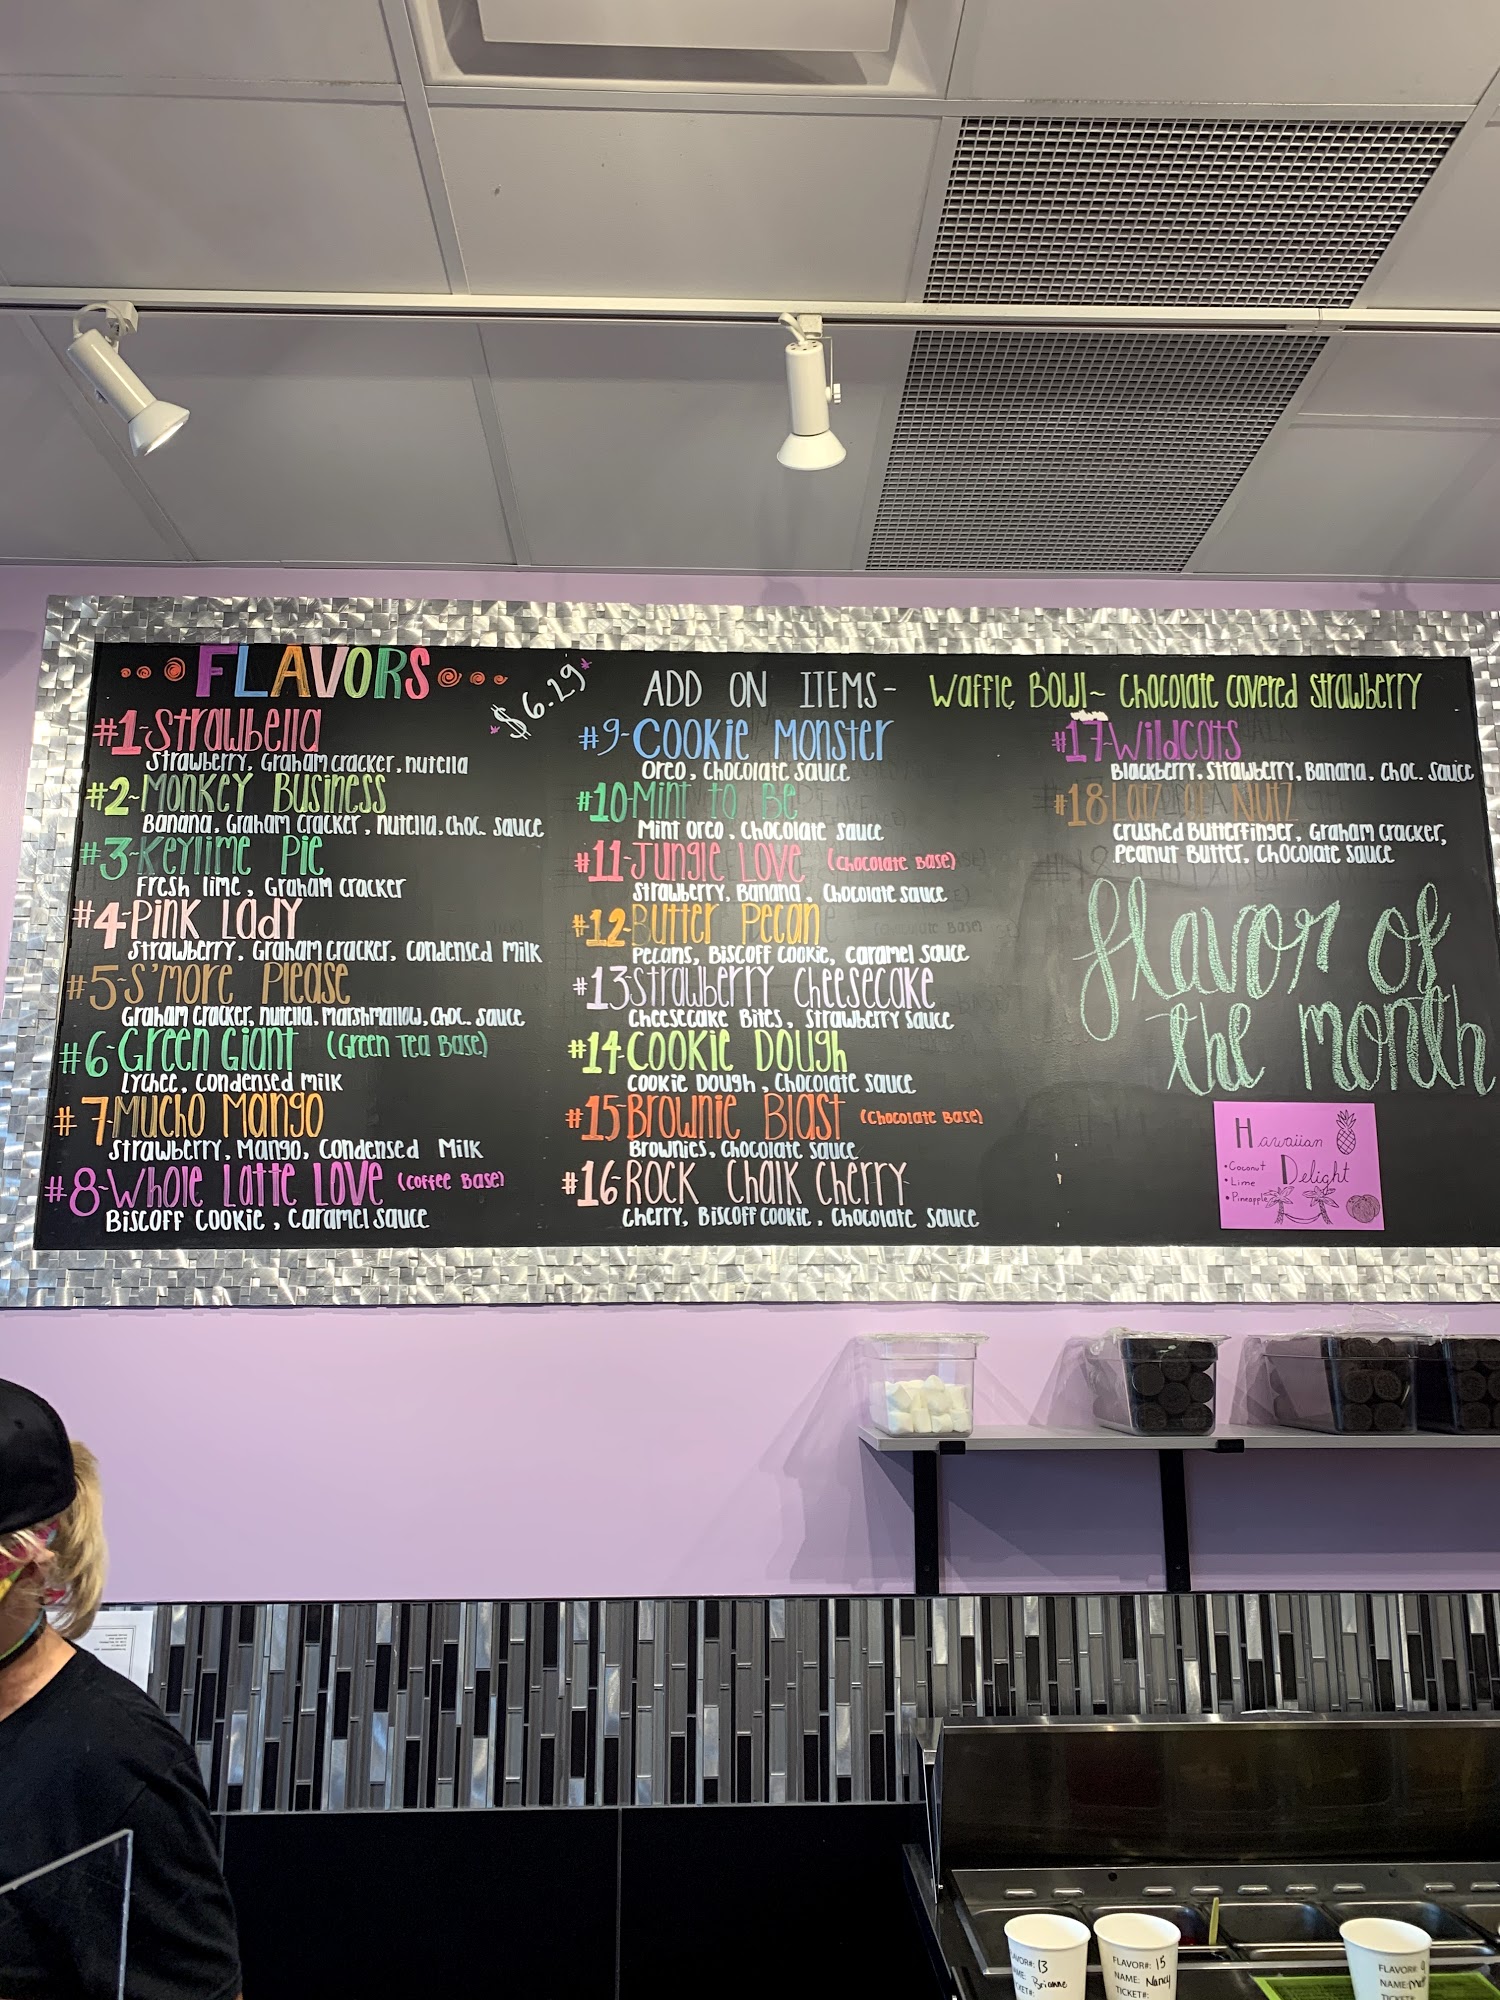 FLAVORS
$6.29
#1-Strawbella
Strawberry, Graham cracker, nutella
#2-Monkey Business
Banana, Graham cracker, nutella, choc. sauce
#3-Keylime Pie
Fresh lime, Graham cracker
#4-Pink Lady
Strawberry, Graham cracker, condensed milk
#5-S'more Please
Graham cracker, nutella, marshmallow, choc. sauce
#6-Green Giant (Green Tea Base)
Lychee, condensed milk
#7-Mucho Mango
Strawberry, Mango, Condensed Milk
#8-Whole Latte Love (Coffee Base)
Biscoff Cookie, Caramel sauce
ADD ON ITEMS- Waffle Bowl~ Chocolate covered strawberry
#9-Cookie Monster
Oreo, Chocolate sauce
#10-Mint to Be
Mint Oreo, Chocolate sauce
#11-Jungle Love (Chocolate Base)
Strawberry, Banana, Chocolate sauce
#12-Butter Pecan
Pecans, Biscoff Cookie, caramel sauce
#13-Strawberry Cheesecake
Cheesecake Bites, Strawberry sauce
#14-Cookie Dough
Cookie Dough, Chocolate sauce
#15-Brownie Blast (Chocolate Base)
Brownies, Chocolate sauce
#16-Rock Chalk Cherry
Cherry, Biscoff cookie, Chocolate sauce
#17-Wildcats
Blackberry, strawberry, Banana, choc. sauce
#18-Lotz of Nutz
Crushed Butterfinger, Graham cracker,
Peanut Butter, Chocolate sauce
flavor of
the month
Hawaiian
Delight
• Coconut
• Lime
• Pineapple
FLAVOR#: 13
NAME: Brianne
TICKET#:
FLAVOR#: 15
NAME: Nancy
TICKET#:
FLAVOR#
NAME:
TICKET#